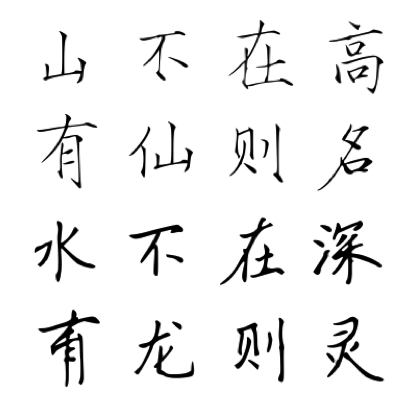 山不在高
有仙则名
水不在深
有龙则灵